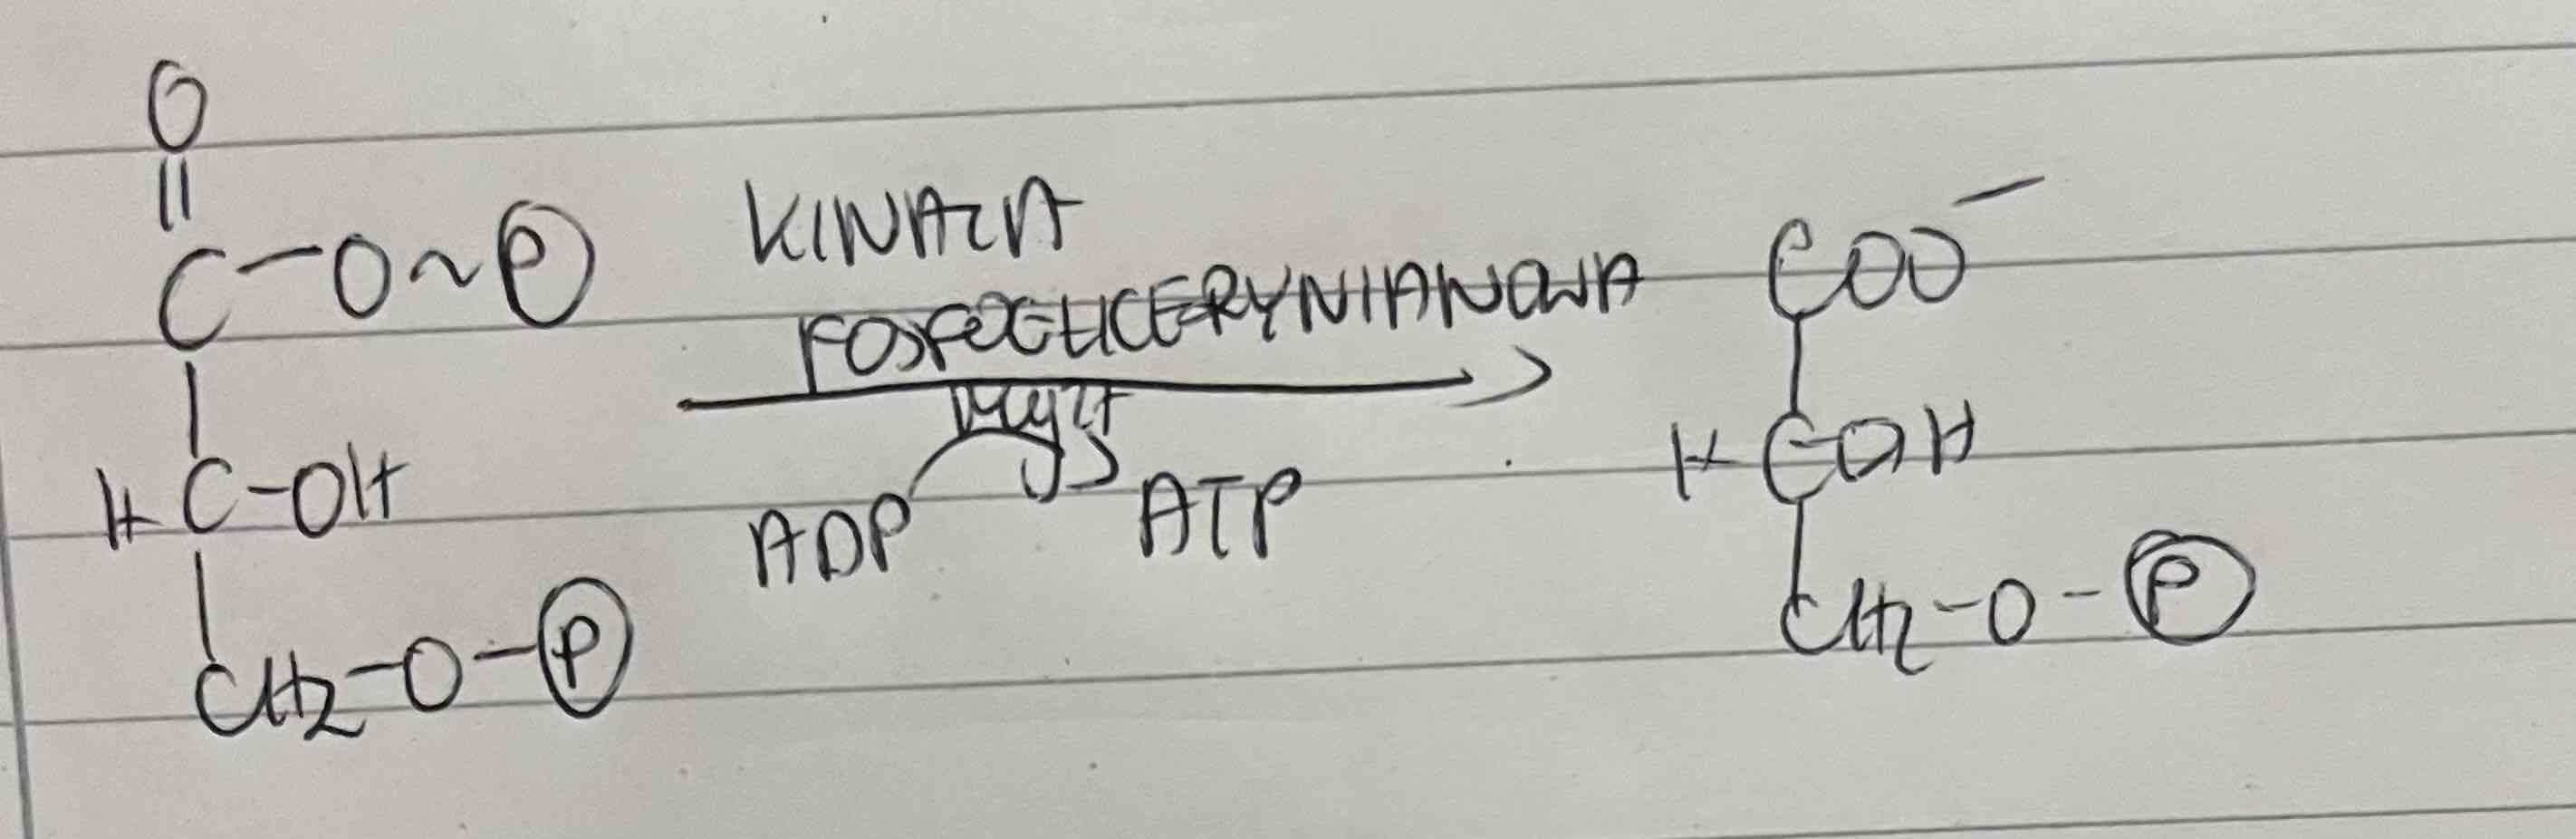 O
||
C-O~P
KINAZA
FOSFOGLICERYNIANOWA
Mg2+
ADP ATP
H C-OH
CH2-O-P
COO-
H C-OH
CH2-O-P